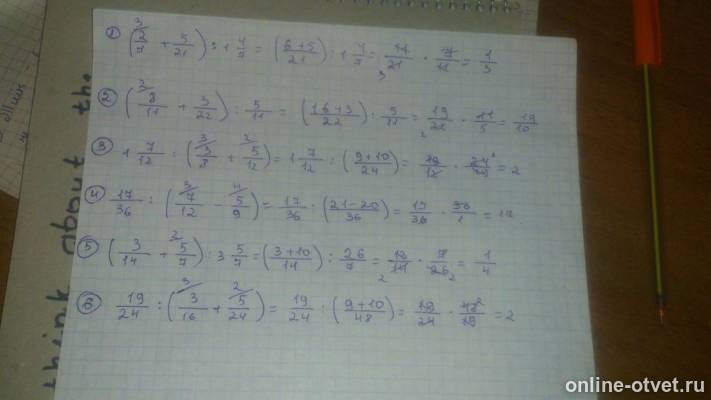 1) (2/7 + 5/21) : 1 4/7 = ((6+5)/21) : 1 4/7 = 11/21 · 7/11 = 1/3
2) (8/11 + 3/22) : 5/11 = ((16+3)/22) : 5/11 = 19/22 · 11/5 = 19/10
3) 1 7/12 : (3/8 + 5/12) = 1 7/12 : ((9+10)/24) = 19/12 · 24/19 = 2
4) 17/36 : (7/12 - 5/9) = 17/36 : ((21-20)/36) = 17/36 · 36/1 = 17
5) (3/14 + 5/7) : 3 5/7 = ((3+10)/14) : 26/7 = 13/14 · 7/26 = 1/4
6) 19/24 : (3/16 + 5/24) = 19/24 : ((9+10)/48) = 19/24 · 48/19 = 2
think about th
online-otvet.ru